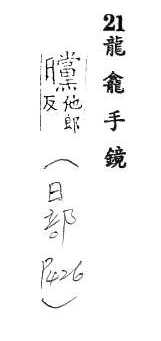 21龍龕手鏡
曭他郎反
(日部 P426)